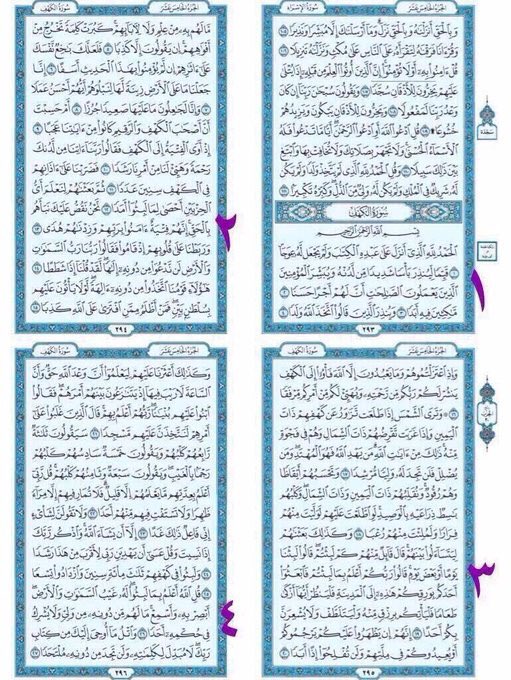 الجزء الخامس عشر
سورة الإسراء
وبالحق أنزلناه وبالحق نزل وما أرسلناك إلا مبشرا ونذيرا ١٠٥
وقرءانا فرقناه لتقرأه على الناس على مكث ونزلناه تنزيلا ١٠٦
قل ءامنوا به أو لا تؤمنوا إن الذين أوتوا العلم من قبله إذا يتلى
عليهم يخرون للأذقان سجدا ١٠٧ ويقولون سبحان ربنا إن كان
وعد ربنا لمفعولا ١٠٨ ويخرون للأذقان يبكون ويزيدهم
خشوعا ١٠٩ قل ادعوا الله أو ادعوا الرحمن أيا ما تدعوا فله
الأسماء الحسنى ولا تجهر بصلاتك ولا تخافت بها وابتغ
بين ذلك سبيلا ١١٠ وقل الحمد لله الذي لم يتخذ ولدا ولم يكن
له شريك في الملك ولم يكن له ولي من الذل وكبره تكبيرا ١١١
سورة الكهف
بسم الله الرحمن الرحيم
الحمد لله الذي أنزل على عبده الكتاب ولم يجعل له عوجا
١ قيما لينذر بأسا شديدا من لدنه ويبشر المؤمنين
الذين يعملون الصالحات أن لهم أجرا حسنا ٢
ماكثين فيه أبدا ٣ وينذر الذين قالوا اتخذ الله ولدا ٤
٢٩٣
سجدة
١
الجزء الخامس عشر
سورة الكهف
ما لهم به من علم ولا لآبائهم كبرت كلمة تخرج من
أفواههم إن يقولون إلا كذبا ٥ فلعلك باخع نفسك
على ءاثارهم إن لم يؤمنوا بهذا الحديث أسفا ٦ إنا
جعلنا ما على الأرض زينة لها لنبلوهم أيهم أحسن عملا
٧ وإنا لجاعلون ما عليها صعيدا جرزا ٨ أم حسبت
أن أصحاب الكهف والرقيم كانوا من ءاياتنا عجبا ٩
إذ أوى الفتية إلى الكهف فقالوا ربنا ءاتنا من لدنك
رحمة وهيئ لنا من أمرنا رشدا ١٠ فضربنا على ءاذانهم
في الكهف سنين عددا ١١ ثم بعثناهم لنعلم أي
الحزبين أحصى لما لبثوا أمدا ١٢ نحن نقص عليك نبأهم
بالحق إنهم فتية ءامنوا بربهم وزدناهم هدى ١٣
وربطنا على قلوبهم إذ قاموا فقالوا ربنا رب السماوات
والأرض لن ندعوا من دونه إلها لقد قلنا إذا شططا ١٤
هؤلاء قومنا اتخذوا من دونه ءالهة لولا يأتون عليهم
بسلطان بين فمن أظلم ممن افترى على الله كذبا ١٥
٢٩٤
٢
الجزء الخامس عشر
سورة الكهف
وإذ اعتزلتموهم وما يعبدون إلا الله فأووا إلى الكهف
ينشر لكم ربكم من رحمته ويهيئ لكم من أمركم مرفقا
١٦ وترى الشمس إذا طلعت تزاور عن كهفهم ذات
اليمين وإذا غربت تقرضهم ذات الشمال وهم في فجوة
منه ذلك من ءايات الله من يهد الله فهو المهتد ومن
يضلل فلن تجد له وليا مرشدا ١٧ وتحسبهم أيقاظا
وهم رقود ونقلبهم ذات اليمين وذات الشمال وكلبهم
باسط ذراعيه بالوصيد لو اطلعت عليهم لوليت منهم
فرارا ولملئت منهم رعبا ١٨ وكذلك بعثناهم
ليتساءلوا بينهم قال قائل منهم كم لبثتم قالوا لبثنا
يوما أو بعض يوم قالوا ربكم أعلم بما لبثتم فابعثوا
أحدكم بورقكم هذه إلى المدينة فلينظر أيها أزكى
طعاما فليأتكم برزق منه وليتلطف ولا يشعرن
بكم أحدا ١٩ إنهم إن يظهروا عليكم يرجموكم
أو يعيدوكم في ملتهم ولن تفلحوا إذا أبدا ٢٠
٢٩٥
٣
الجزء الخامس عشر
سورة الكهف
وكذلك أعثرنا عليهم ليعلموا أن وعد الله حق وأن
الساعة لا ريب فيها إذ يتنازعون بينهم أمرهم فقالوا
ابنوا عليهم بنيانا ربهم أعلم بهم قال الذين غلبوا على
أمرهم لنتخذن عليهم مسجدا ٢١ سيقولون ثلاثة
رابعهم كلبهم ويقولون خمسة سادسهم كلبهم
رجما بالغيب ويقولون سبعة وثامنهم كلبهم قل ربي
أعلم بعدتهم ما يعلمهم إلا قليل فلا تمار فيهم إلا مراء
ظاهرا ولا تستفت فيهم منهم أحدا ٢٢ ولا تقولن لشايء
إني فاعل ذلك غدا ٢٣ إلا أن يشاء الله واذكر ربك
إذا نسيت وقل عسى أن يهدين ربي لأقرب من هذا رشدا
٢٤ ولبثوا في كهفهم ثلاث مائة سنين وازدادوا تسعا
٢٥ قل الله أعلم بما لبثوا له غيب السماوات والأرض
أبصر به وأسمع ما لهم من دونه من ولي ولا يشرك
في حكمه أحدا ٢٦ واتل ما أوحي إليك من كتاب
ربك لا مبدل لكلماته ولن تجد من دونه ملتحدا ٢٧
٢٩٦
٤